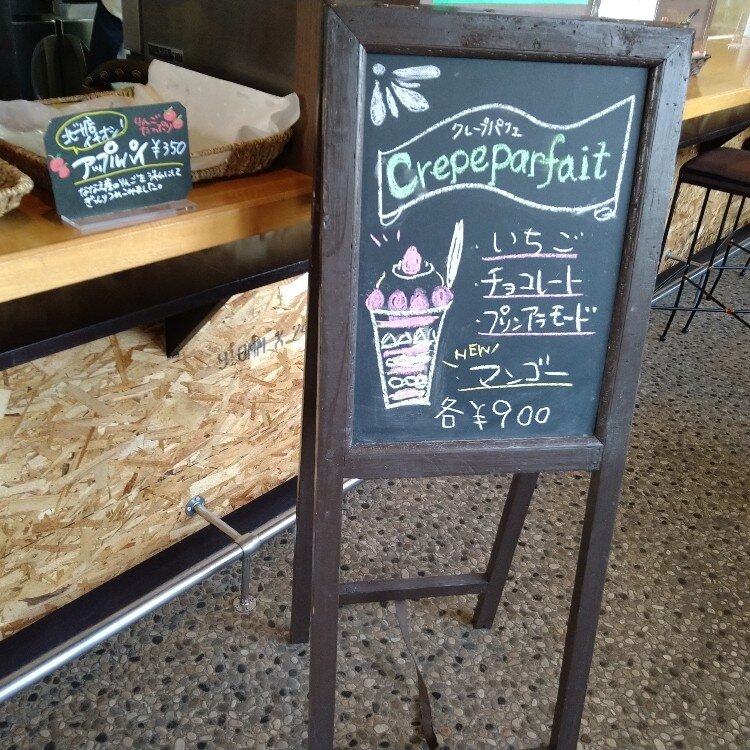 クレープパフェ
Crepeparfait
・いちご
・チョコレート
・プリンアラモード
NEW
・マンゴー
各¥900
当店イチオシ!
りんごたっぷり
アップルパイ ¥350
910MM X 24